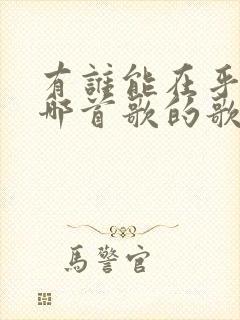 有誰能在乎
哪首歌的歌
馬警官